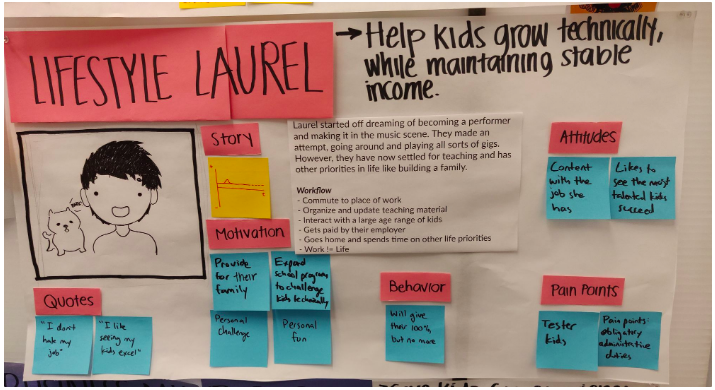 LIFESTYLE LAUREL
→ Help kids grow technically,
while maintaining stable
income.
Story
Laurel started off dreaming of becoming a performer
and making it in the music scene. They made an
attempt, going around and playing all sorts of gigs.
However, they have now settled for teaching and has
other priorities in life like building a family.
Workflow
- Commute to place of work
- Organize and update teaching material
- Interact with a large age range of kids
- Gets paid by their employer
- Goes home and spends time on other life priorities
- Work != Life
Motivation
Provide
for their
family
Expand
school programs
to challenge
kids technically
Personal
challenge
Personal
fun
Attitudes
Content
with the
job she
has
Likes to
see the most
talented kids
succeed
Quotes
"I don't
hate my
job"
"I like
seeing my
kids excel"
Behavior
Will give
their 100%
but no more
Pain Points
Tester
kids
Pain points:
obligatory
administrative
duties